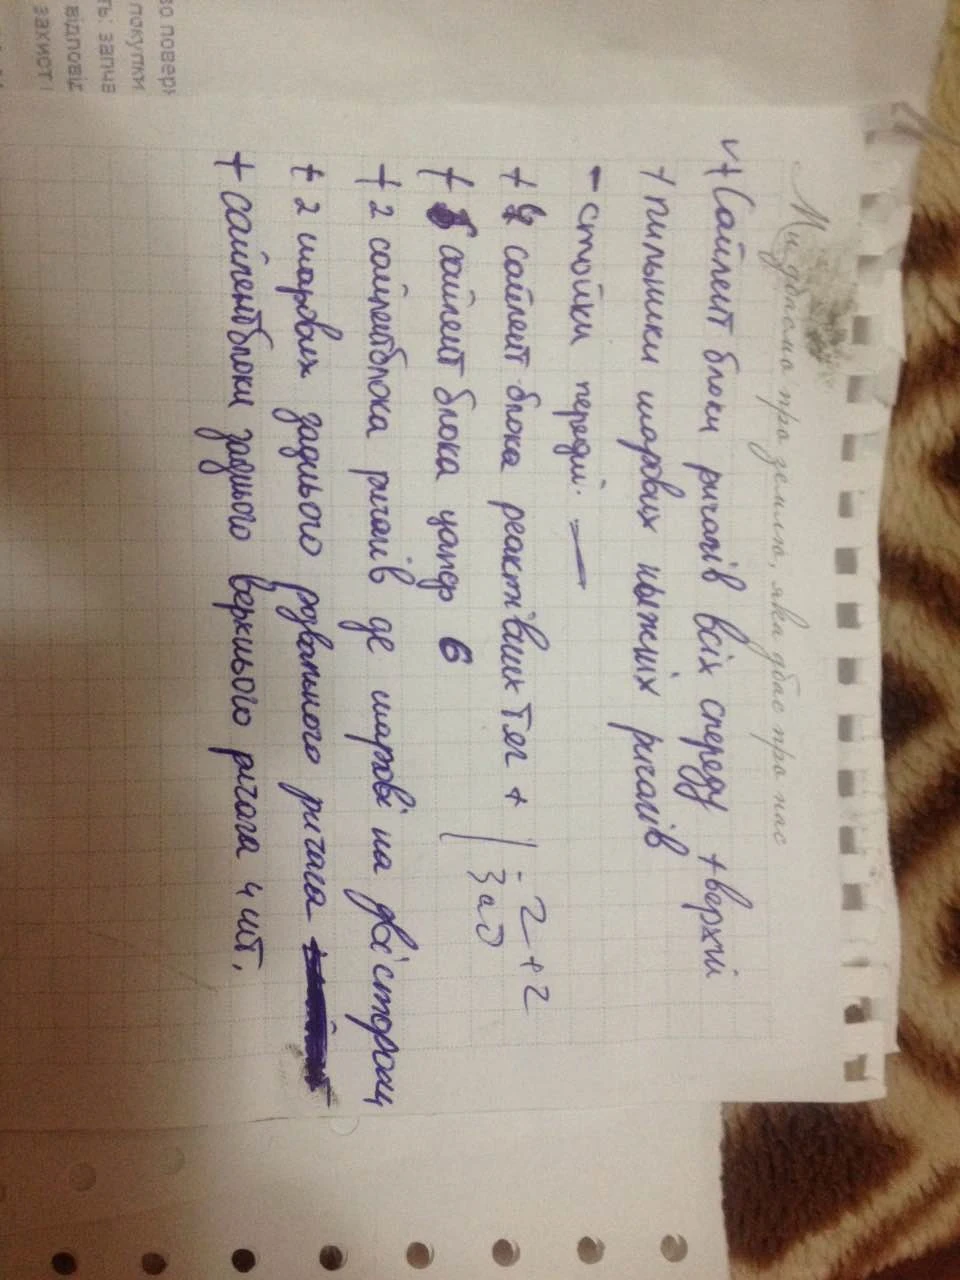 Ми дбаємо про землю, яка дбає про нас
v+ Сайлент блоки ричагів всіх спереду + верхні
+ пильники шарових ныжніх ричагів
- стойки передні. —
+ 4 сайлент блока реактивних тяг + | - 2 + 2
+ сайлент блока цапф 6 | зад
+ 2 сайлентблока ричагів де шарові на дві стороны
+ 2 шарових заднього розвального ричага
+ сайлентблоки заднього верхнього ричага 4 шт.
во повер
покупки
ть: запча
відповід
захист